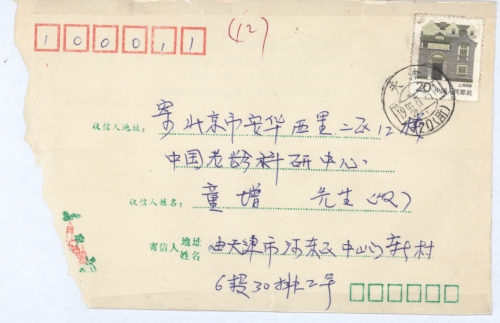 100011
(12)
20
上海民居
中国人民邮政
天津
寄北京市安华西里二区12楼
收信人地址:
中国老龄科研中心
收信人姓名: 童增 先生(收)
寄信人 地址 姓名 由天津市河东区中山门新村
6段30排2号